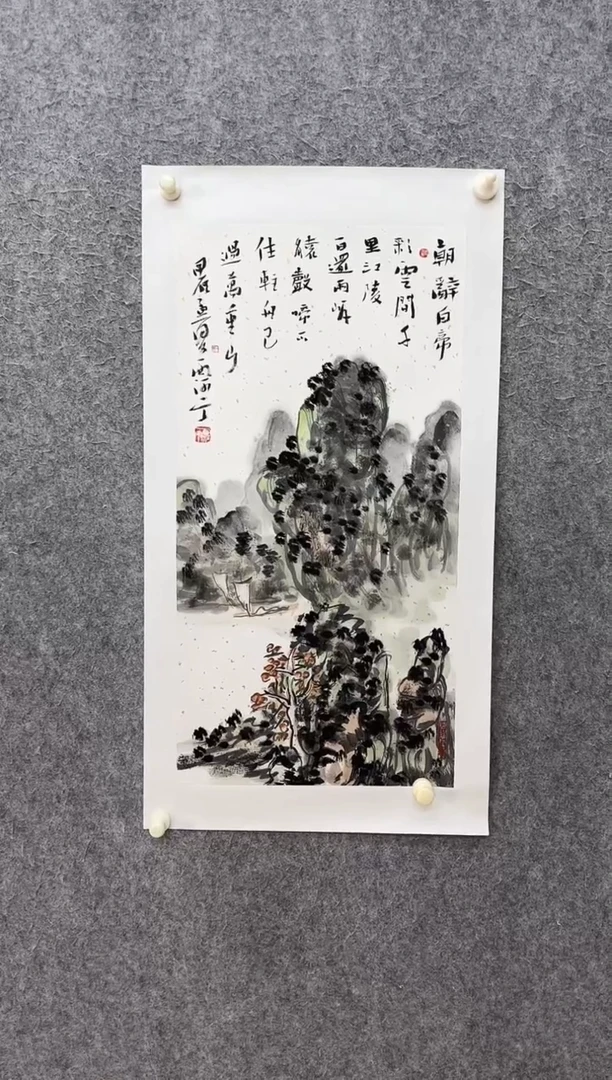 朝辭白帝
彩雲間千
里江陵
一日還兩岸
猿聲啼不
住輕舟已
過萬重山
甲辰孟